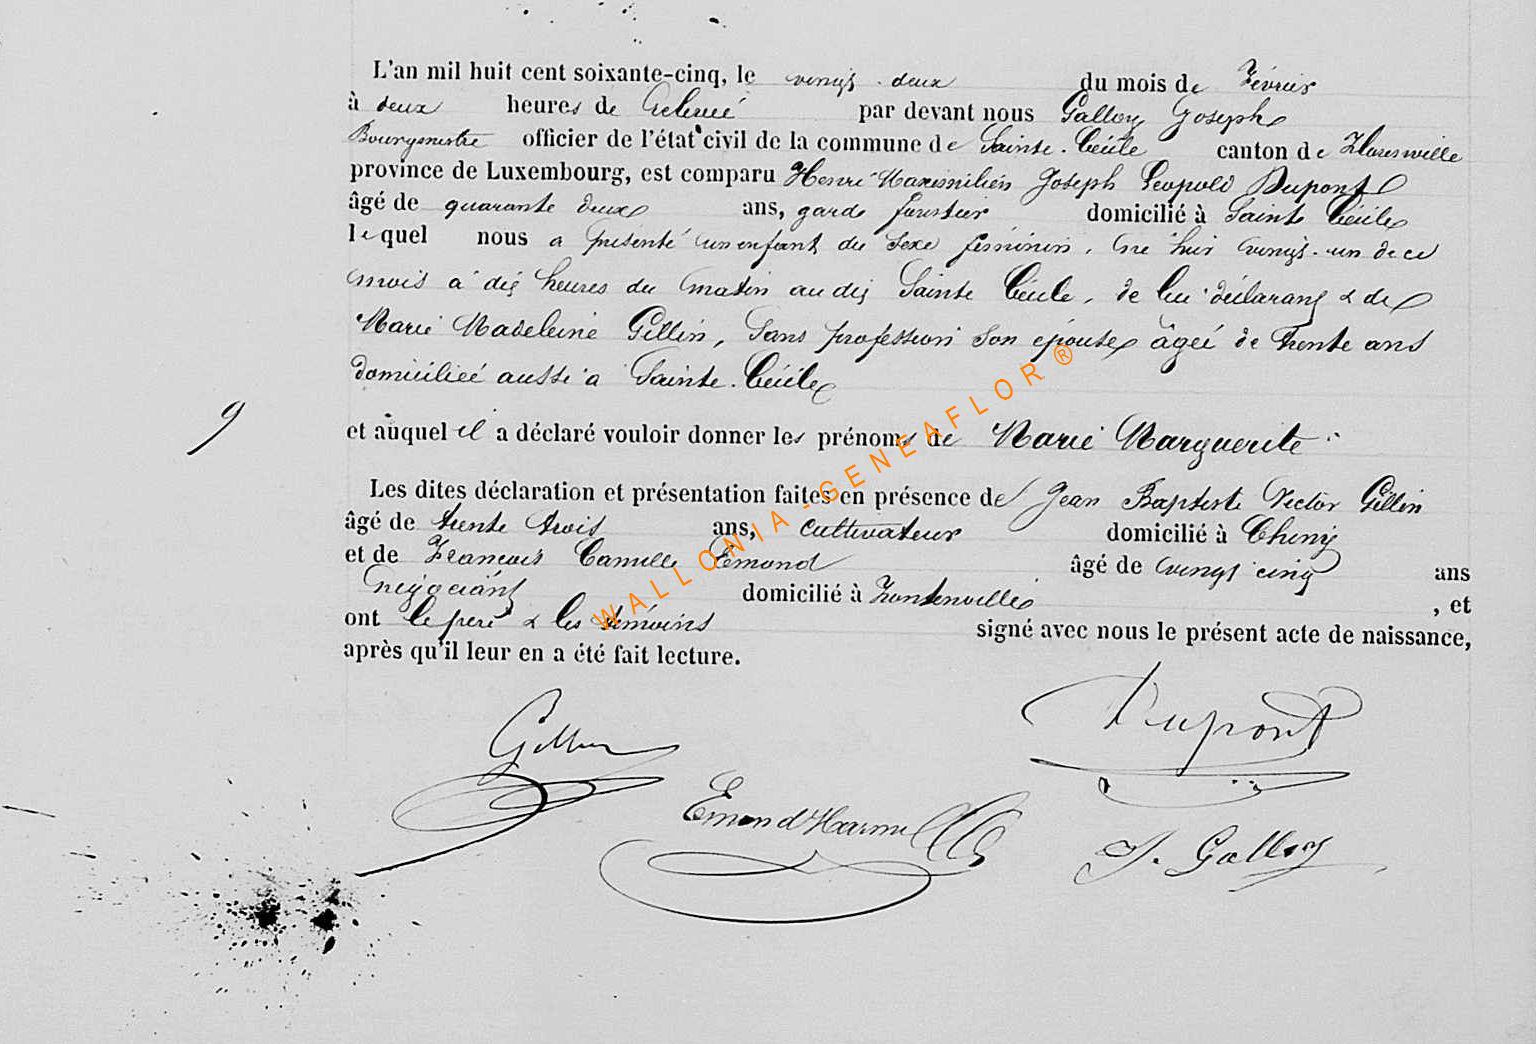 L'an mil huit cent soixante-cinq, le vingt deux du mois de Février
à deux heures de relevée par devant nous Galloy Joseph
Bourgmestre officier de l'état civil de la commune de Sainte Cécile canton de Florenville
province de Luxembourg, est comparu Henri Maximilien Joseph Leopold Dupont
âgé de quarante deux ans, garde forestier domicilié à Sainte Cécile
lequel nous a présenté un enfant du sexe féminin, né hier vingt un de ce
mois à dix heures du matin au dit Sainte Cécile, de lui déclarant & de
Marie Madeleine Gillin, sans profession son épouse âgée de trente ans
domiciliée aussi à Sainte Cécile
9
et auquel il a déclaré vouloir donner les prénoms de Marie Marguerite
Les dites déclaration et présentation faites en présence de Jean Baptiste Victor Gillin
âgé de trente trois ans, cultivateur domicilié à Chiny
et de Francois Camille Emond âgé de vingt cinq ans
négociant domicilié à Fontenoille , et
ont le père & les témoins signé avec nous le présent acte de naissance,
après qu'il leur en a été fait lecture.
Gillin Dupont
Emond Harmel
J. Galloy
WALLONIA-GENEAFLOR ®